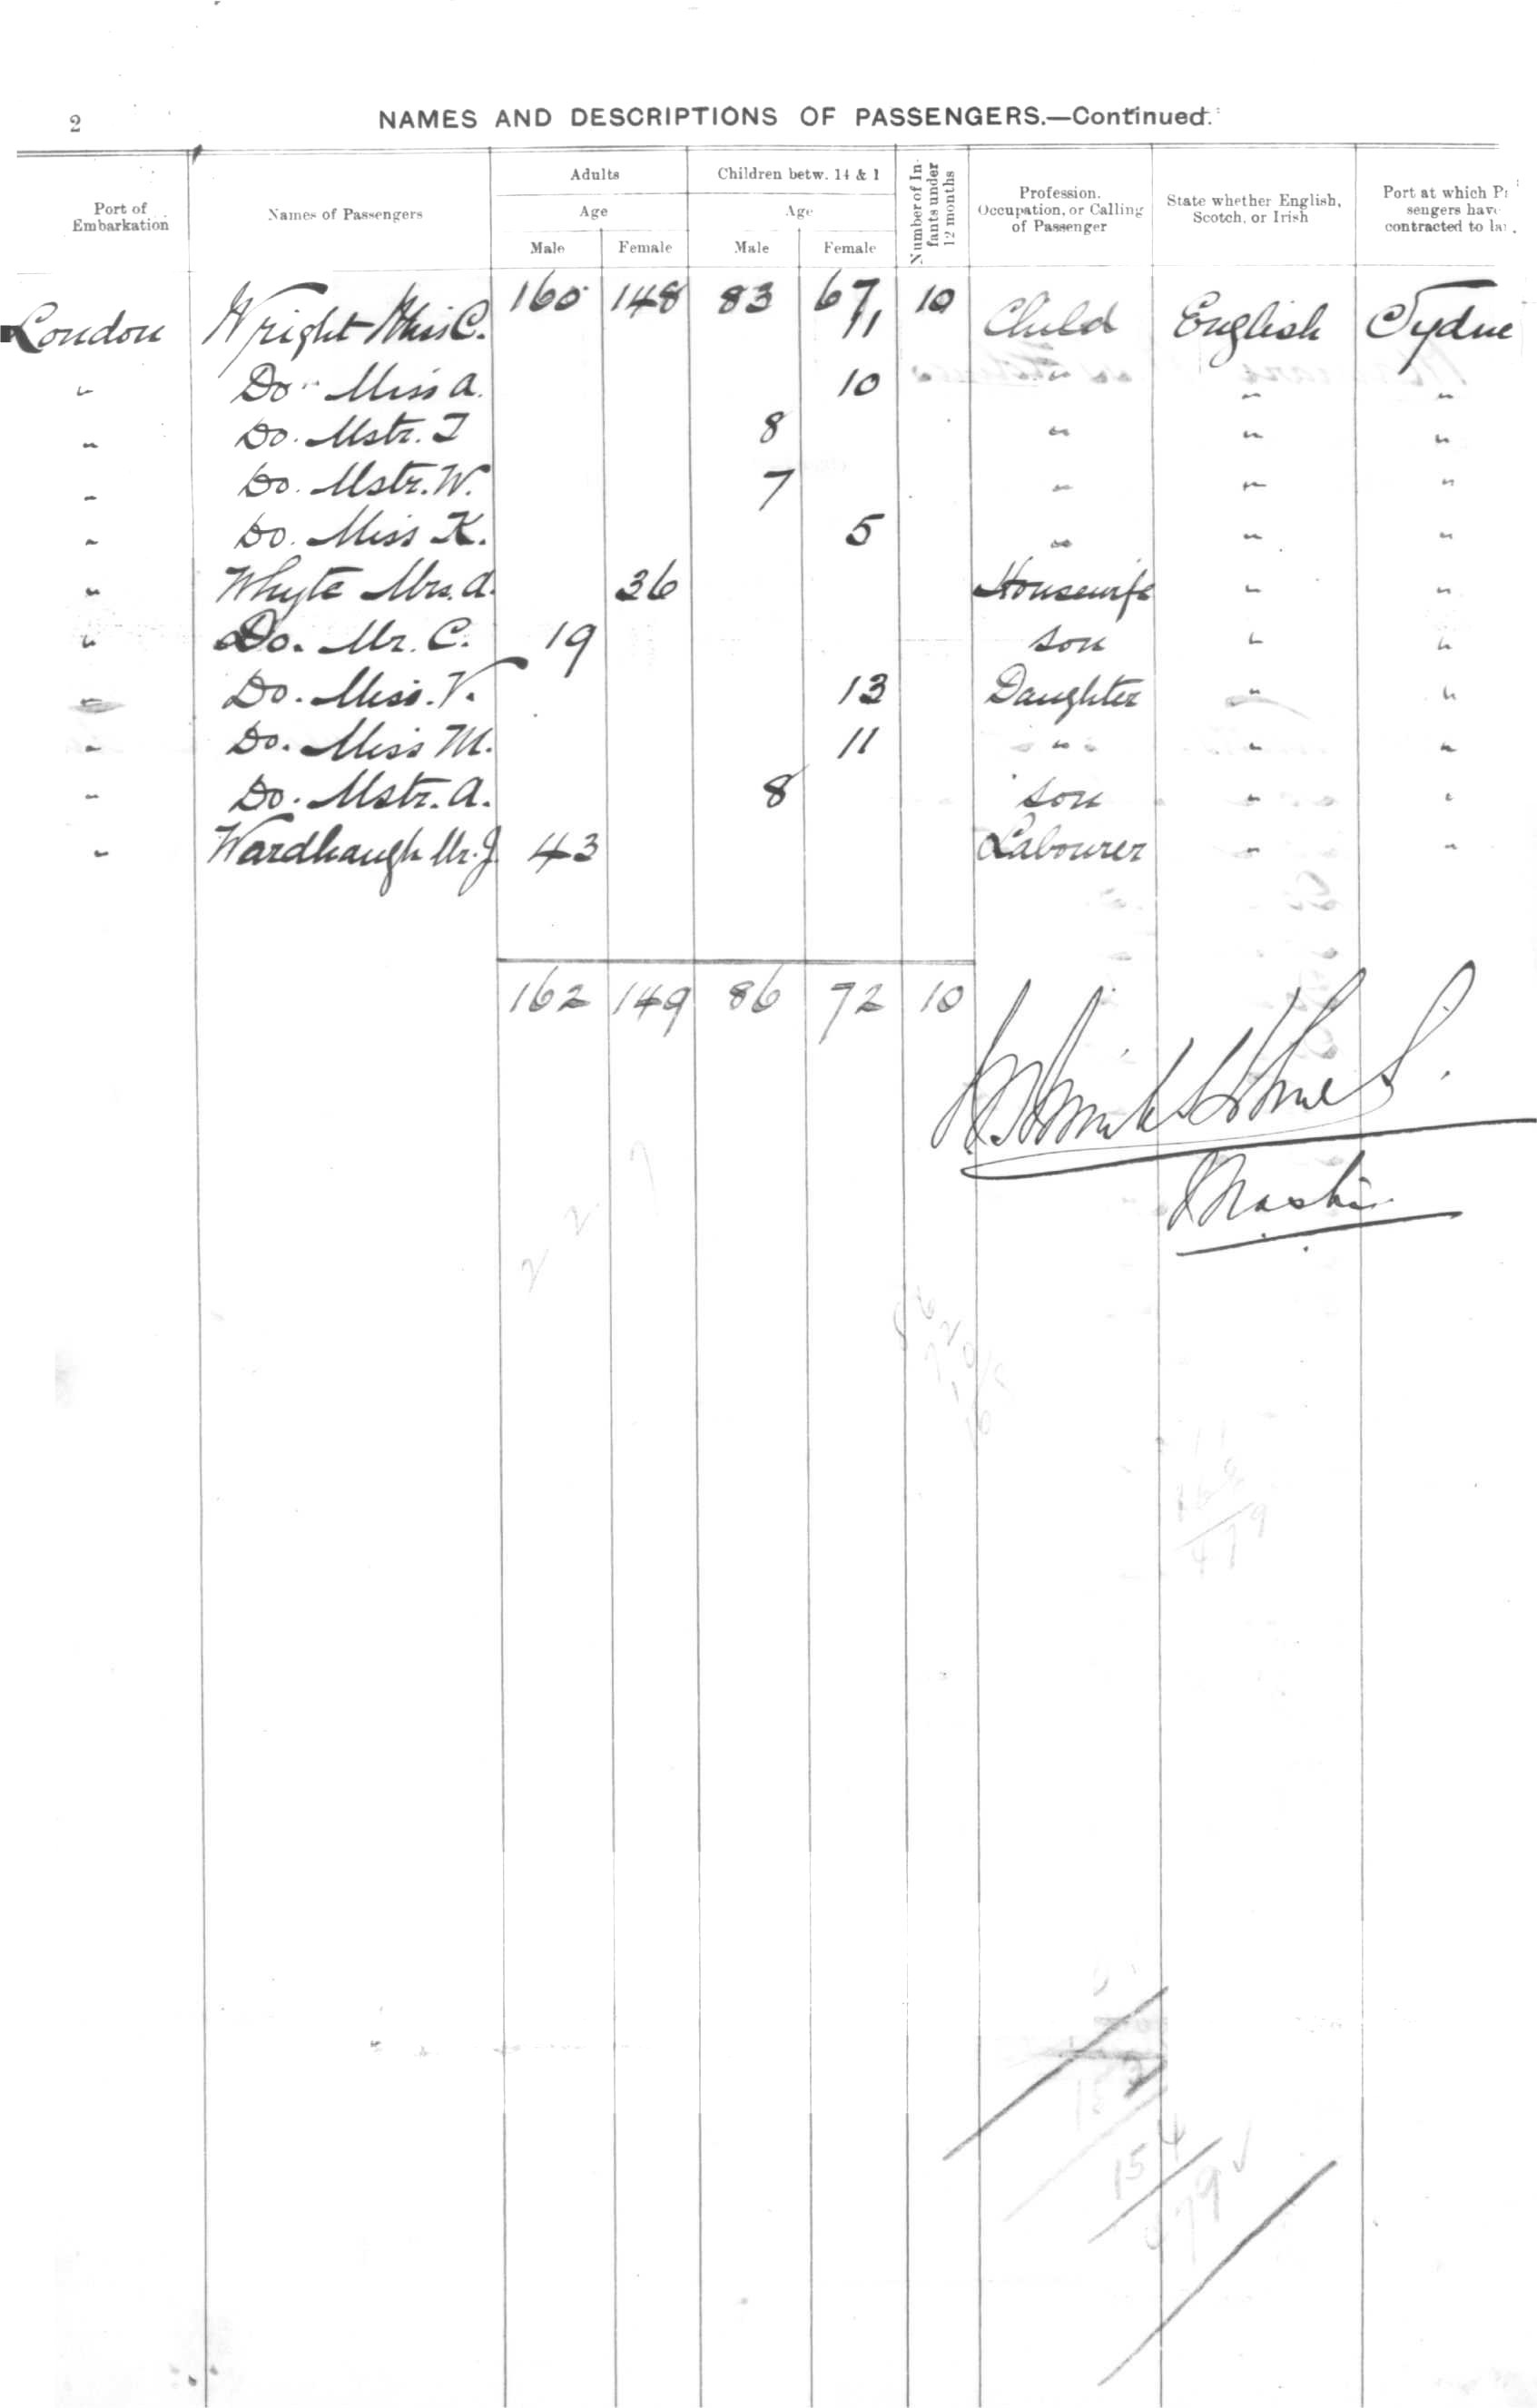 2
NAMES AND DESCRIPTIONS OF PASSENGERS.—Continued.
Port of Embarkation
Names of Passengers
Adults
Age
Male Female
Children betw. 14 & 1
Age
Male Female
Number of Infants under 12 months
Profession. Occupation, or Calling of Passenger
State whether English, Scotch, or Irish
Port at which P
sengers have
contracted to la
160 148 83 67 10
London Wright Miss C. 11 Child English Sydne
" Do " Miss A. 10 " " "
" Do. Mstr. T 8 " " "
" Do. Mstr. W. 7 " " "
" Do. Miss K. 5 " " "
" Whyte Mrs. A. 36 Housewife " "
" Do. Mr. C. 19 Son " "
" Do. Miss. V. 13 Daughter " "
" Do. Miss M. 11 " " "
" Do. Mstr. A. 8 Son " "
" Wardhaugh Mr. J. 43 Labourer " "
162 149 86 72 10
154